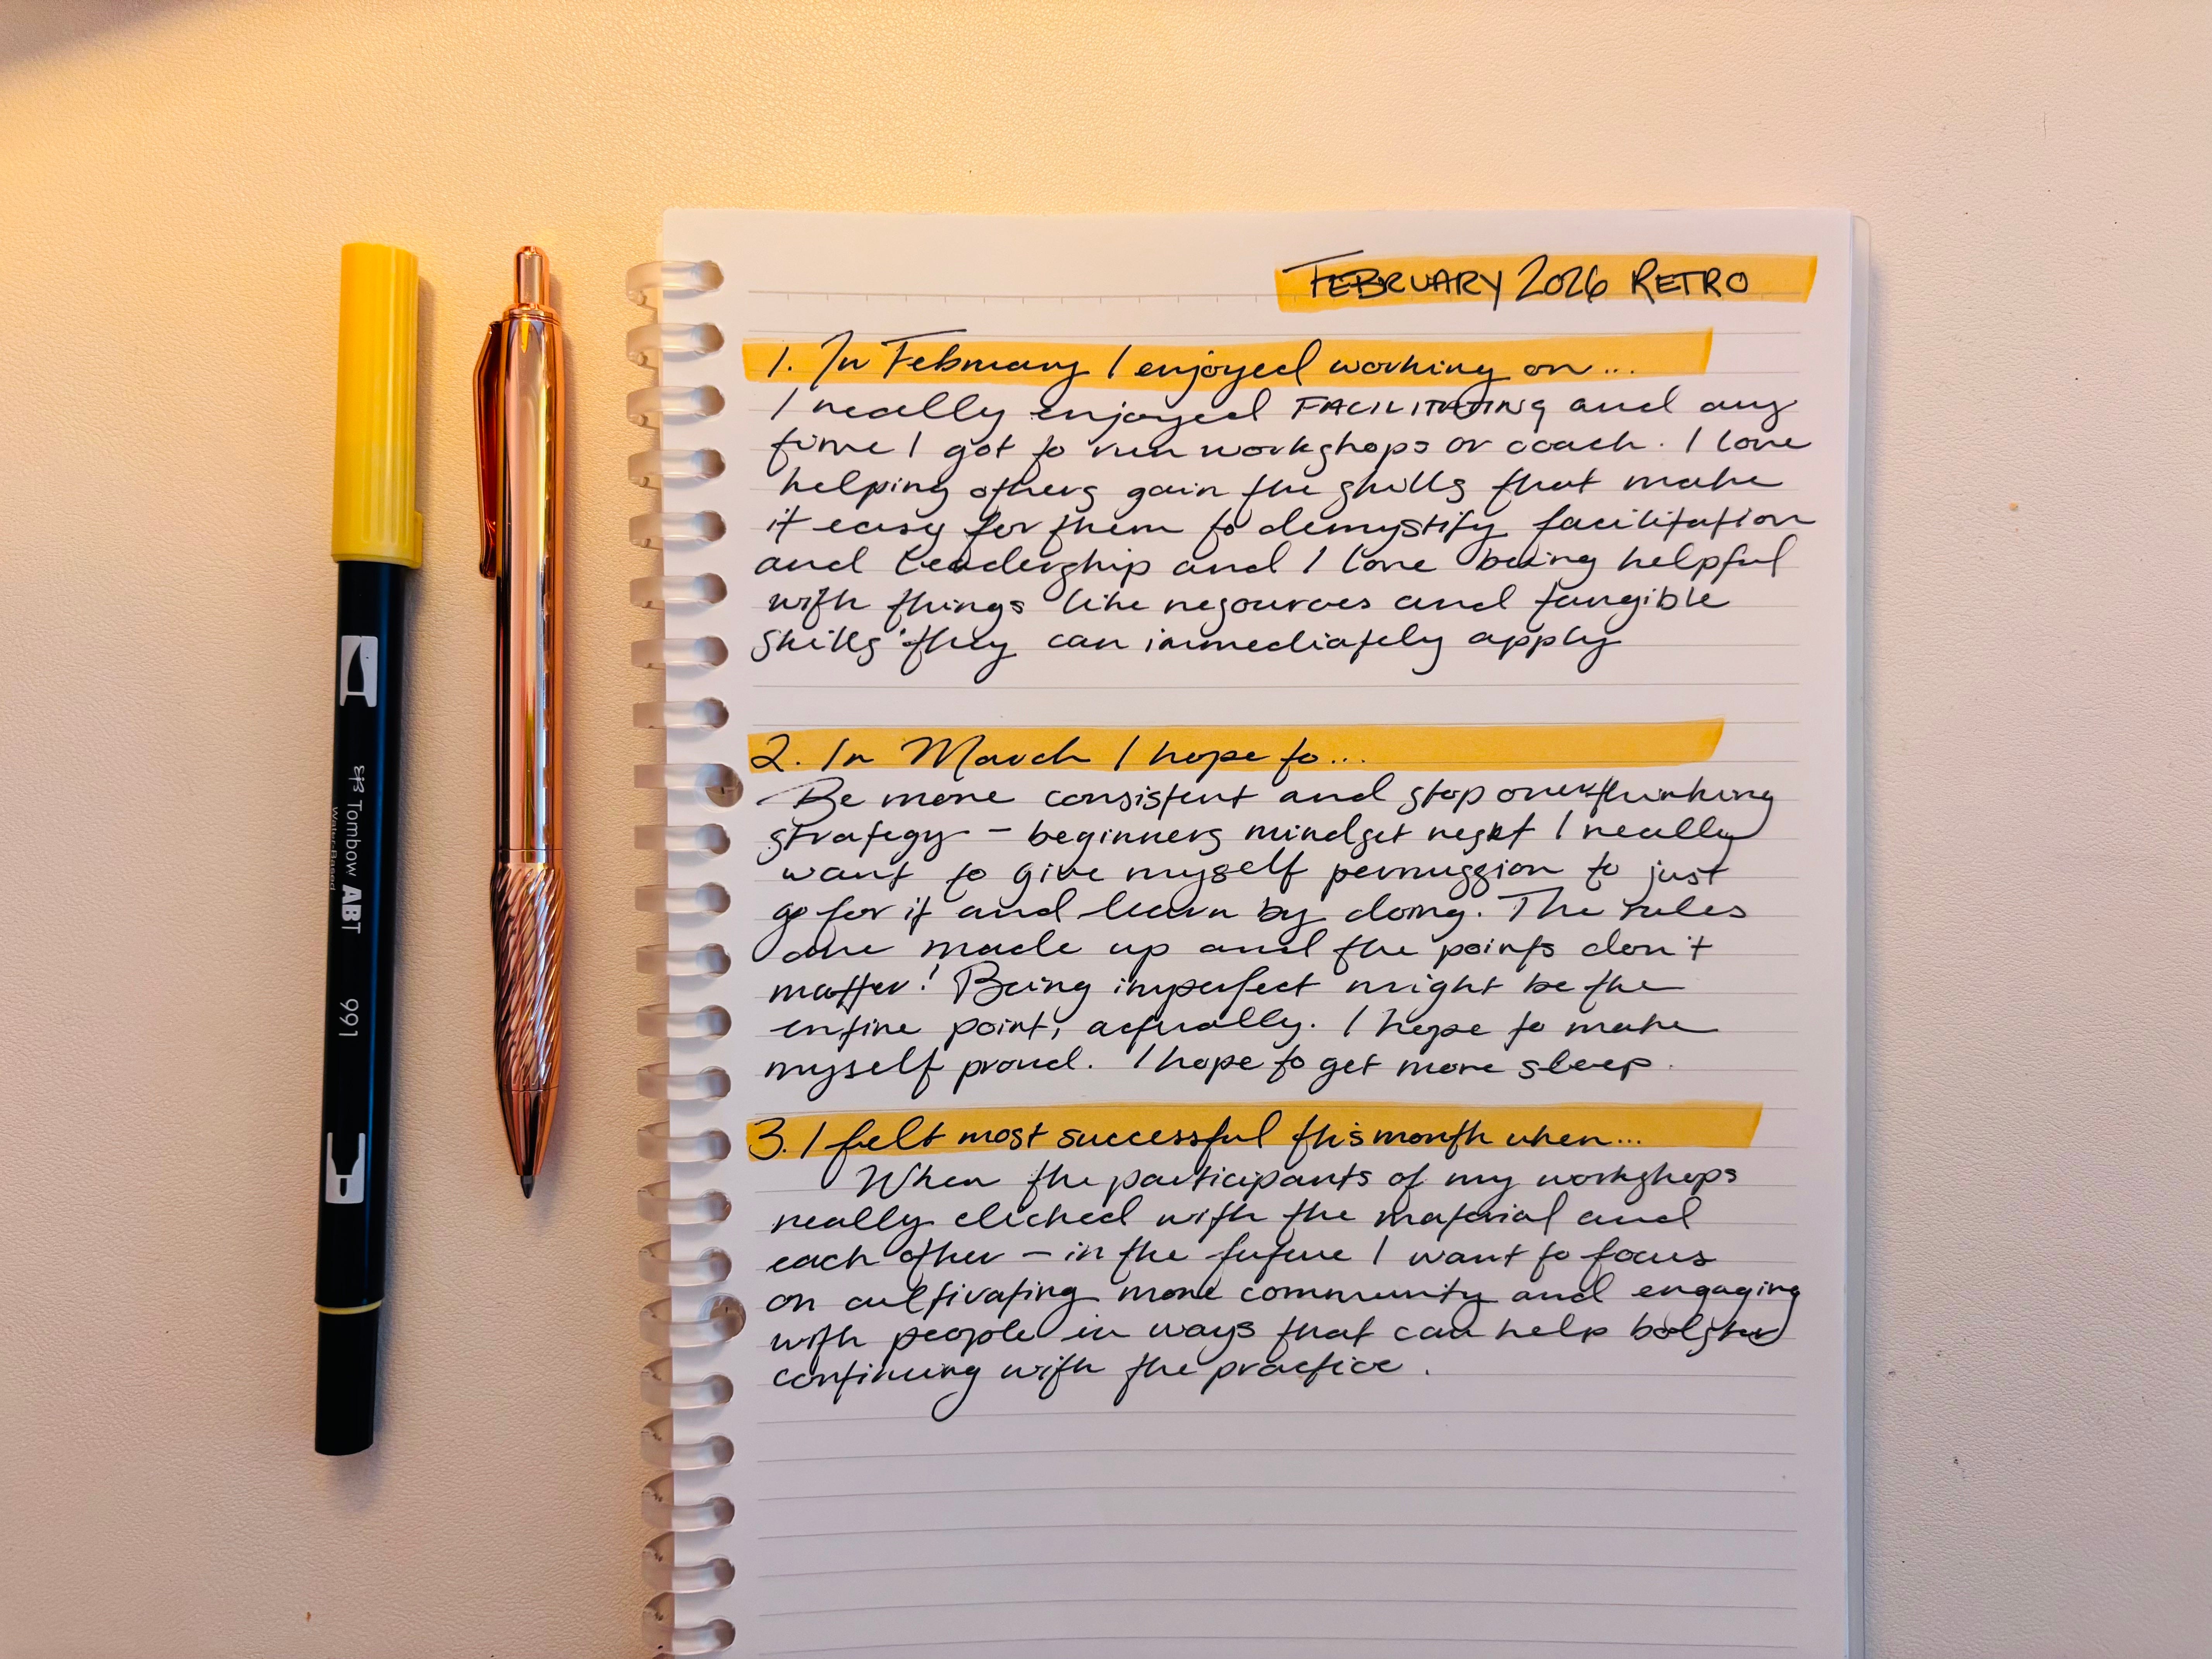 FEBRUARY 2026 RETRO
1. In February I enjoyed working on...
I really enjoyed FACILITATING and any
time I got to run workshops or coach. I love
helping others gain the skills that make
it easy for them to demystify facilitation
and leadership and I love being helpful
with things like resources and tangible
skills they can immediately apply
2. In March I hope to...
Be more consistent and stop overthinking
strategy - beginners mindset I really
want to give myself permission to just
go for it and learn by doing. The rules
are made up and the points don't
matter! Being imperfect might be the
entire point, actually. I hope to make
myself proud. I hope to get more sleep.
3. I felt most successful this month when...
When the participants of my workshops
really clicked with the material and
each other - in the future I want to focus
on cultivating more community and engaging
with people in ways that can help bolster
continuing with the practice.
Tombow ABT 991
Water-Based